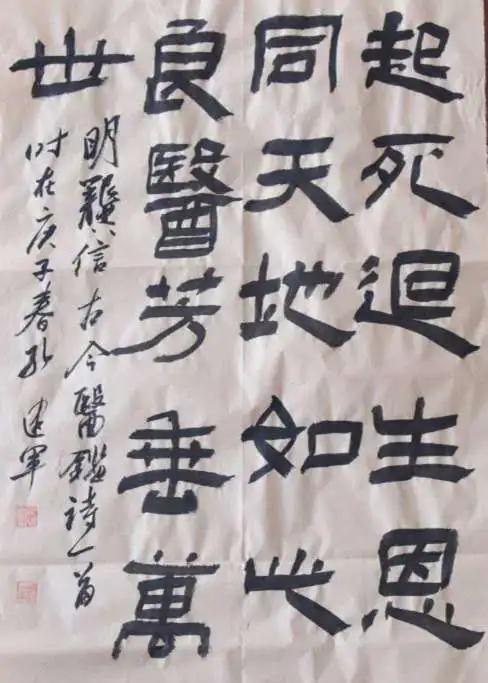 起死迴生恩
同天地如此
良醫芳垂萬
世
明龔信古今醫鑑詩一首
时在庚子春孔建军